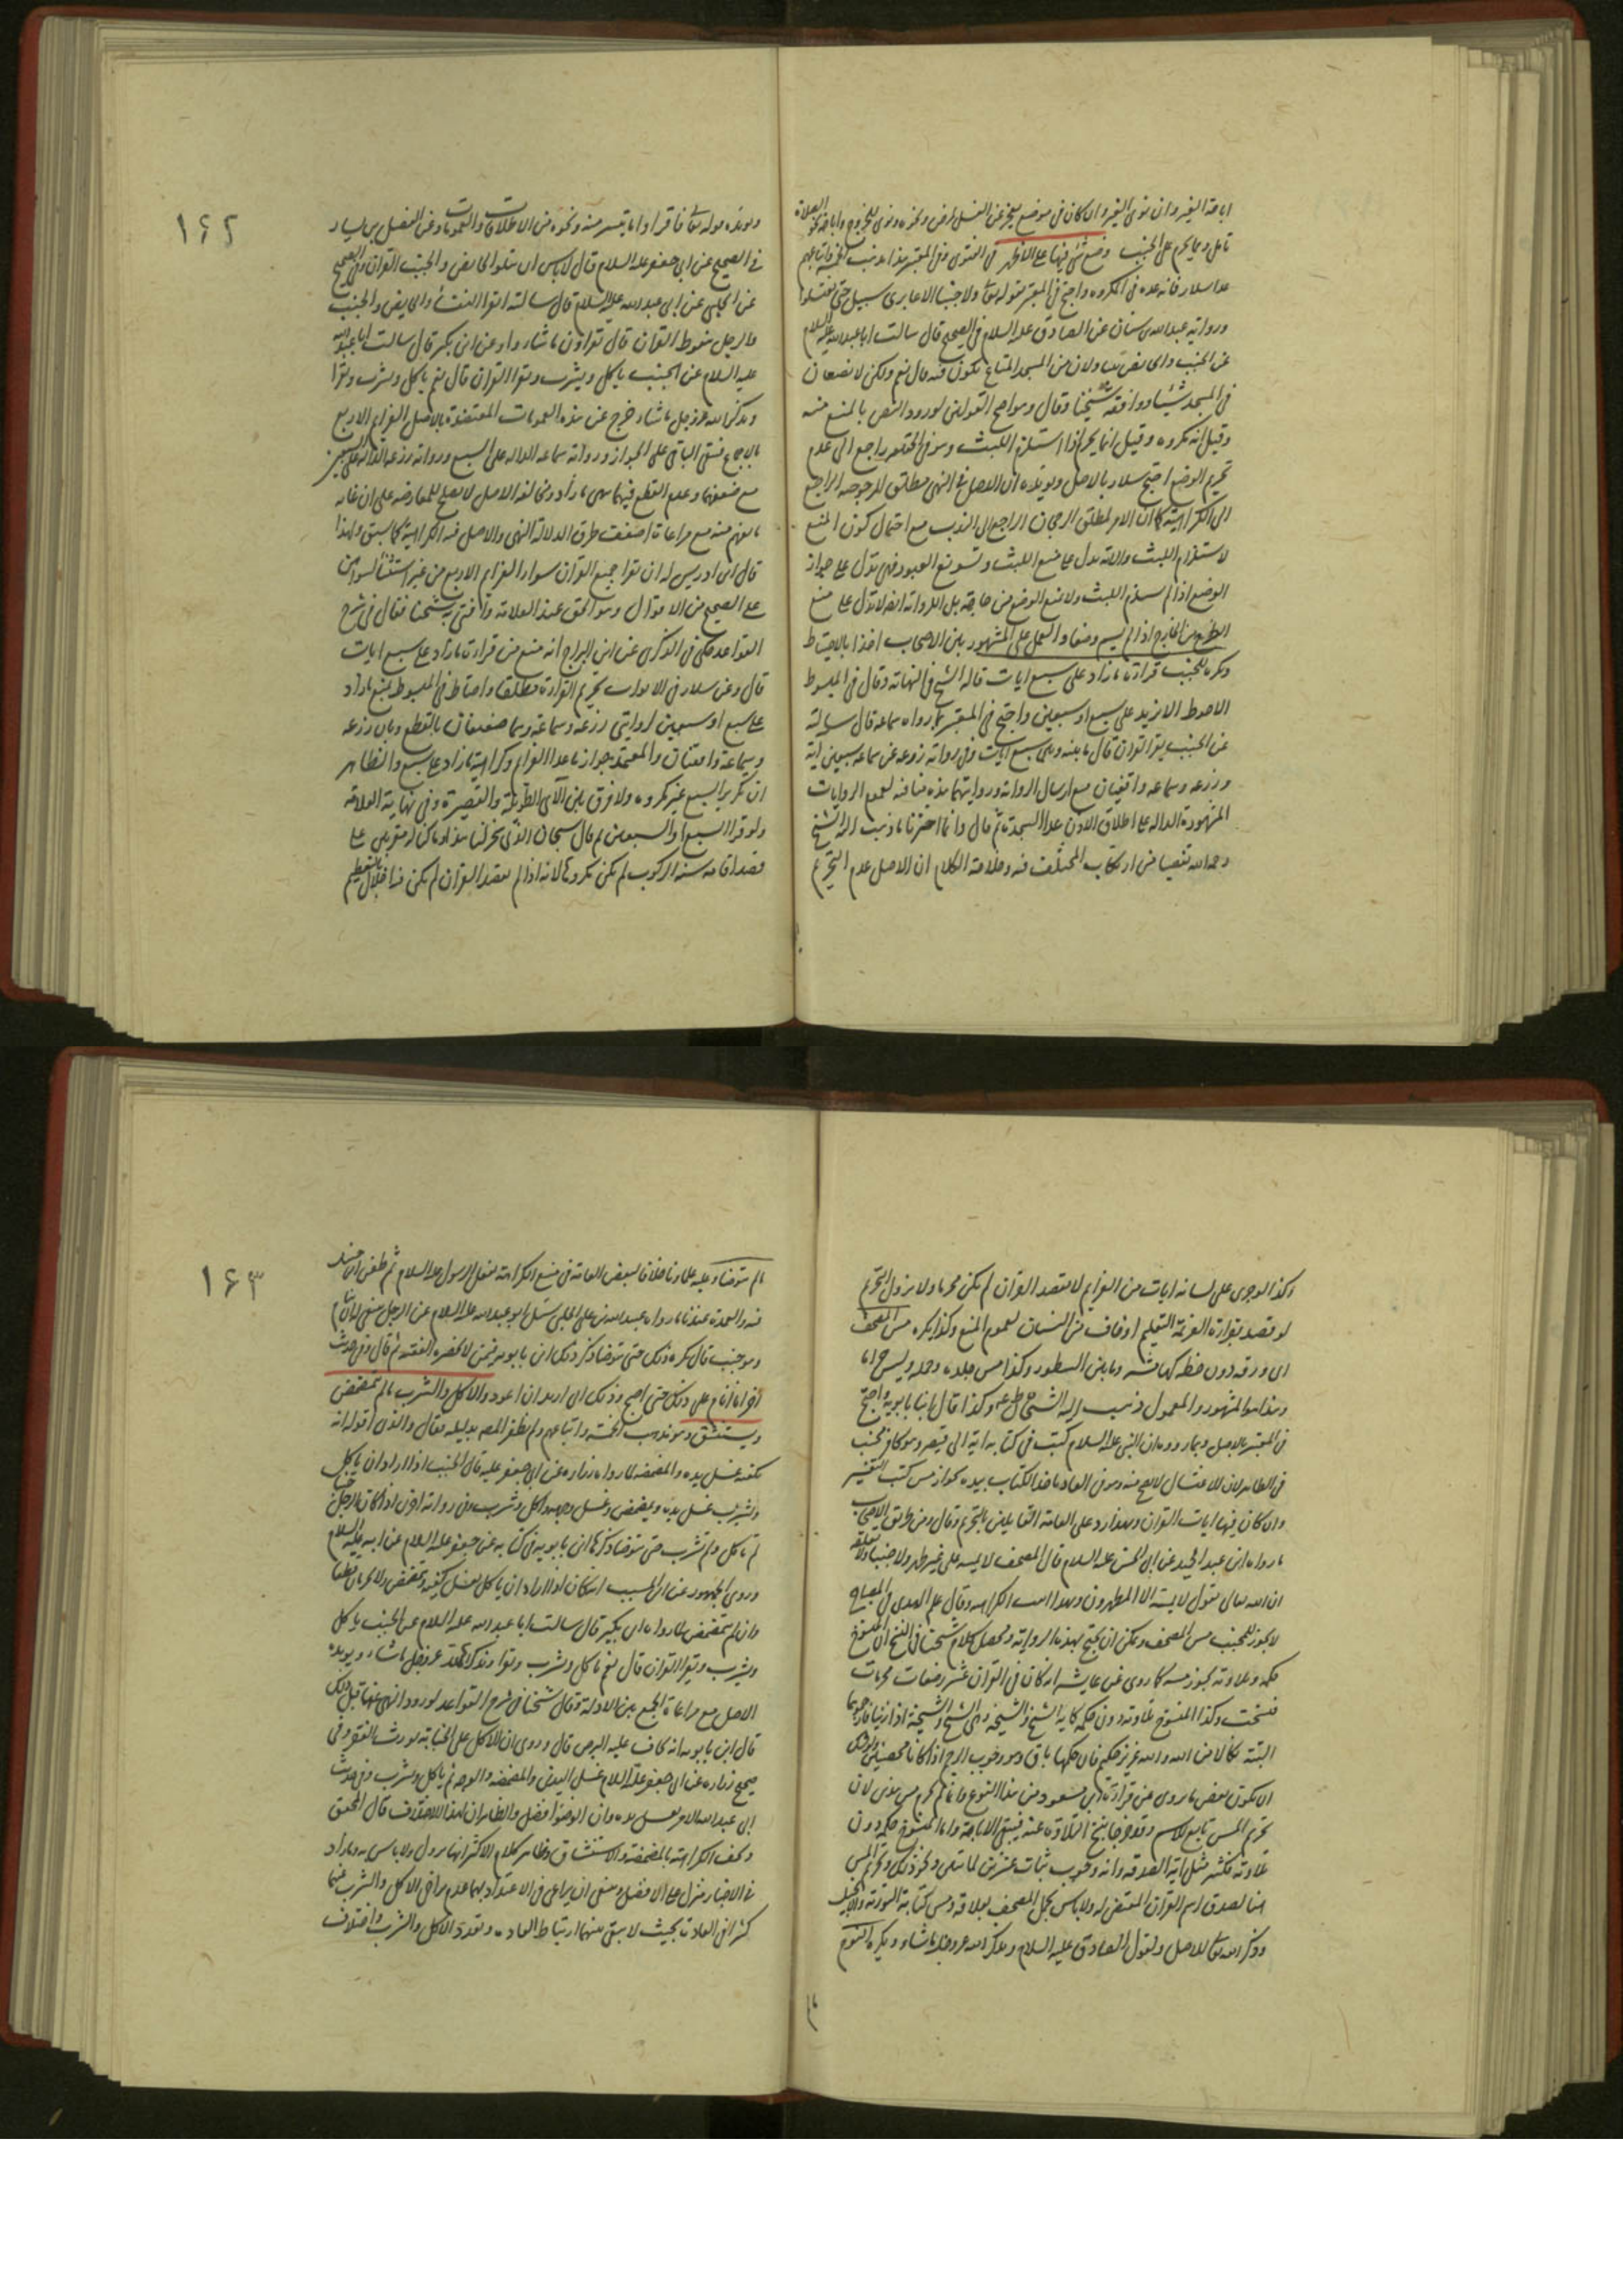 اباحة الغير وان نوى الغير وان كان فى موضع يعجز عن الغسل لمرض ونحوه ونوى للخروج واباحة نحو الصلاة
تامل ومما يحرم على الجنب وضع شئ فيها على الاظهر فى الفتوى وفى المعتبر هذا مذهب الخمسة واتباعهم
عدا سلار فانه عده فى المكروه واحتج فى المعتبر بقوله تعالى ولا جنبا الا عابرى سبيل حتى تغتسلوا
ورواية عبدالله بن سنان عن الصادق عليه السلام فى الصحيح قال سالت ابا عبدالله عليه السلام
عن الجنب والحايض يتناولان من المسجد المتاع يكون فيه قال نعم ولكن لا يضعان
فى المسجد شيئا ووافقه شيخنا وقال وهو اصح القولين لورود النص بالمنع منه
وقيل انه مكروه وقيل انما يحرم اذا استلزم اللبث وهو فى الحقيقه راجع الى عدم
تحريم الوضع احتج سلار بالاصل ويؤيده ان الاصل فى النهى مطلق المرجوحية الراجع
الى الكراهية كما ان الامر لمطلق الرجحان الراجع الى الندب مع احتمال كون المنع
لاستلزام اللبث والاية تدل على منع اللبث وتسويغ العبور فهى تدل على جواز
الوضع اذا لم يستلزم اللبث ولا منع الوضع من خارجه بل الرواية ايضا لا تدل على منع
الطرح من الخارج اذا لم يسم وضعا والعمل على المشهور بين الاصحاب اخذا بالاحتياط
ويكره للجنب قراءة ما زاد على سبع ايات قاله الشيخ فى النهاية وقال فى المبسوط
الاحوط الا يزيد على سبع او سبعين واحتج فى المعتبر بما رواه سماعه قال سالته
عن الجنب يقرا القران قال ما بينه وبين سبع ايات وفى رواية زرعه عن سماعه سبعين اية
وزرعه وسماعه واقفيان مع ارسال الرواية وروايتهما هذه منافيه لعموم الروايات
المشهورة الداله على اطلاق الاذن عدا السجدة ثم قال وانما اخترنا ما ذهب اليه الشيخ
رحمه الله تفصيا من ارتكاب المختلف فيه وخلاصة الكلام ان الاصل عدم التحريم
١٦٢
ويؤيده قوله تعالى فاقراوا ما تيسر منه ونحوه من الاطلاقات والعمومات وعن الفضيل بن يسار
فى الصحيح عن ابى جعفر عليه السلام قال لا باس ان تتلو الحايض والجنب القران وفى الصحيح
عن الحلبى عن ابى عبدالله عليه السلام قال سالته اتقرا النفساء والحايض والجنب
والرجل يتغوط القران قال تقراون ما شاؤوا وعن ابن بكير قال سالت ابا عبدالله
عليه السلام عن الجنب ياكل ويشرب ويقرا القران قال نعم ياكل ويشرب ويقرا
ويذكر الله عز وجل ما شاء خرج عن هذه العمومات المعتضدة بالاصل العزايم الاربع
بالاجماع فيبقى الباقى على الجواز ورواية سماعه الداله على السبع ورواية زرعه الداله على السبعين
مع ضعفهما وعدم القطع فيهما بنهى ما زاد ومخالفة الاصل لا يصلح للمعارضه على ان غاية
ما يفهم منه مع مراعاة اضعف طرق الدلالة النهى والاصل فيه الكراهية كما سبق ولهذا
قال ابن ادريس له ان يقرا جميع القران سوى العزايم الاربع من غير استثناء لسواهن
على الصحيح من الاقوال وهو الحق عند العلامة وافتى به شيخنا فقال فى شرح
القواعد حكى فى الذكرى عن ابن البراج انه منع من قراءة ما زاد على سبع ايات
قال وعن سلار فى الابواب تحريم القراءة مطلقا واحتاط فى المبسوط بمنع ما زاد
على سبع او سبعين لروايتى زرعه وسماعة وهما ضعيفتان بالقطع وبان زرعه
وسماعة واقفيان والمعتمد جواز ما عدا العزايم وكراهية ما زاد على سبع والظاهر
ان تكرير السبع غير مكروه ولا فرق بين الآى الطويلة والقصيرة وفى نهاية العلامة
ولو قرا السبع او السبعين ثم قال سبحان الذى سخر لنا هذا وما كنا له مقرنين على
قصد اقامه سنة الركوب لم يكن مكروها لانه اذا لم يقصد القران لم يكن فيه اخلال بالتعظيم
وكذا لو جرى على لسانه ايات من العزايم لا بقصد القران لم يكن محرما ولا يزول التحريم
لو قصد بقراءة العزيمة التعليم او خاف من النسيان لعموم المنع وكذا يكره مس المصحف
اى ورقه دون خطه كهامشه وما بين السطور وكذا مس جلده وحمله وليس حراما
وهذا هو المشهور والمعمول ذهب اليه الشيخ طاب ثراه وكذا قال ابنا بابويه واحتج
فى المعتبر بالاصل وبما روى ان النبى عليه السلام كتب فى كتابه اية الى قيصر وهو كافر مجنب
فى الظاهر لان الاغتسال لا يصح منه وهو فى العادة ياخذ الكتاب بيده كجواز مس كتب التفسير
وان كان فيها ايات القران وهذا رد على العامة القايلين بالتحريم وقال ومن طريق الاصحاب
ما رواه ابن عبد الحميد عن ابى الحسن عليه السلام قال المصحف لا تمسه على غير طهر ولا جنبا ولا تعلقه
ان الله تعالى يقول لا يمسه الا المطهرون وهذا اثبت الكراهيه وقال علم الهدى فى المصباح
لا يجوز للجنب مس المصحف ويمكن ان يحتج بهذه الرواية ومحصل كلام شيخنا فى النسخ ان المنسوخ
حكمه وتلاوته يجوز مسه كما روى عن عايشه انه كان فى القران عشر رضعات محرمات
فنسخت وكذا المنسوخ تلاوته دون حكمه كاية الشيخ والشيخه وهى الشيخ والشيخة اذا زنيا فارجموهما
البتة نكالا من الله والله عزيز حكيم فان حكمها باق وهو وجوب الرجم اذا كانا محصنين ويوشك
ان يكون بعض ما روى عن قراءة ابن مسعود من هذا النوع وانما لم يحرم مس هذى لان
تحريم المس تابع للاسم وقد خرجا بنسخ التلاوة عنه فيبقى الاباحة واما المنسوخ حكمه دون
تلاوته فكثير مثل اية الصدقه وانه وجوب ثبات عشرين لمائتين ونحو ذلك ويحرم المس
هنا لصدق اسم القران المقتضى له ولا باس بحمل المصحف بعلاقه ومس كتابة التوراة والانجيل
وذكر الله تعالى للاصل ولقول الصادق عليه السلام ويذكر الله عز وجل ما شاء ويكره النوم
ما لم
١٦٣
ما لم يتوضا وعليه علماؤنا خلافا لبعض العامة فى منع الكراهة لفعل الرسول عليه السلام ثم طعن ابن حنبل
فيه والعمدة عندنا ما رواه عبيدالله بن على الحلبى سئل ابو عبدالله عليه السلام عن الرجل ينبغى له ان ينام
وهو جنب قال يكره ذلك حتى يتوضا وذكر ذلك ابن بابويه فيمن لا يحضره الفقيه ثم قال وفى حديث
اخر انا انام على ذلك حتى اصبح وذلك انى اريد ان اعود والاكل والشرب ما لم يتمضمض
ويستنشق وهو مذهب الخمسة واتباعهم ولم يظفر المصنف بدليله فقال والذى اقوله انه
يكفيه غسل يده والمضمضه لما رواه زراره عن ابى جعفر عليه قال الجنب اذا اراد ان ياكل
ويشرب غسل يده وتمضمض وغسل وجهه واكل وشرب وفى رواية اخرى اذا كان الرجل جنبا
لم ياكل ولم يشرب حتى يتوضا وذكرها ابن بابويه فى كتابه عن جعفر عليه السلام عن ابيه عليه السلام
وروى الجمهور عن ابن المسيب انه كان اذا اراد ان ياكل يغسل كفيه ويتمضمض ولا يحرمان قطعا
وان لم يتمضمض لما رواه ابن بكير قال سالت ابا عبد الله عليه السلام عن الجنب ياكل
ويشرب ويقرا القران قال نعم ياكل ويشرب ويقرا ويذكر الله عز وجل ما شاء ويؤيده
الاصل مع مراعاة الجمع بين الادلة وقال شيخنا فى شرح القواعد لورود النهى عنهما قبل ذلك
قال ابن بابويه انه يخاف عليه البرص قال وروى ان الاكل على الجنابة يورث الفقر وفى
صحيح زراره عن ابى جعفر عليه السلام غسل اليدين والمضمضه والوجه ثم ياكل ويشرب وفى حديث
ابى عبدالله الامر بغسل يده وان الوضوء افضل والظاهر ان هذا الاختلاف قال المحقق
ويخفف الكراهة بالمضمضة والاستنشاق وظاهر كلام الاكثر انها تزول ولا باس به وما زاد
فى الاخبار منزل على الافضل وينبغى ان يراعى فى الاعتداد بهما عدم تراخى الاكل والشرب عنهما
كثيرا فى العادة بحيث لا يبقى بينهما ارتباط العادة وتعدد الاكل والشرب واختلاف